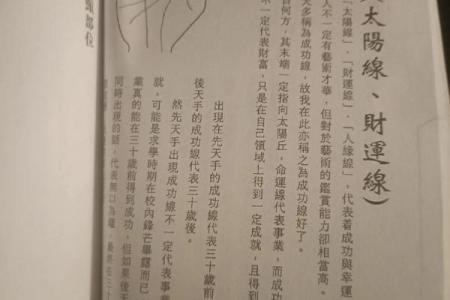 太陽線、財運線）
「太陽線」，「財運線」，「人緣線」，代表着成功與幸運
人不一定有藝術才華，但對於藝術的鑑賞能力卻相當高。
多稱為成功線，故我在此亦稱之為成功線好了。
何方，其末端一定指向太陽丘，命運線代表事業，而成功
不一定代表財富，只是在自己領域上得到一定成就，且得到
出現在先天手的成功線代表三十歲前
後天手的成功線代表三十歲後。
然先天手出現成功線不一定代表事業
就，可能是求學時期在校內鋒芒畢露而已
屬真的能在三十歲前得到成功，但如果後天
同時出現的話，代表無以為繼，最終在三十
部位